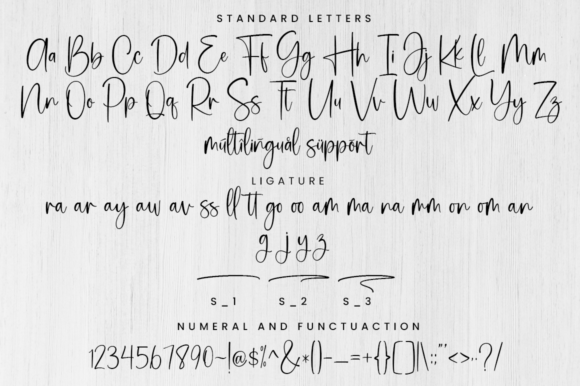 STANDARD LETTERS
Aa Bb Cc Dd Ee Ff Gg Hh Ii Jj Kk Ll Mm
Nn Oo Pp Qq Rr Ss Tt Uu Vv Ww Xx Yy Zz
multilingual support
LIGATURE
ra ar ay aw av ss ll tt go oo am ma na mm on om an
g j y z
S_1 S_2 S_3
NUMERAL AND FUNCTUACTION
1234567890~!@$%^&*()-_=+{}[]|\:;"'<>.,?/